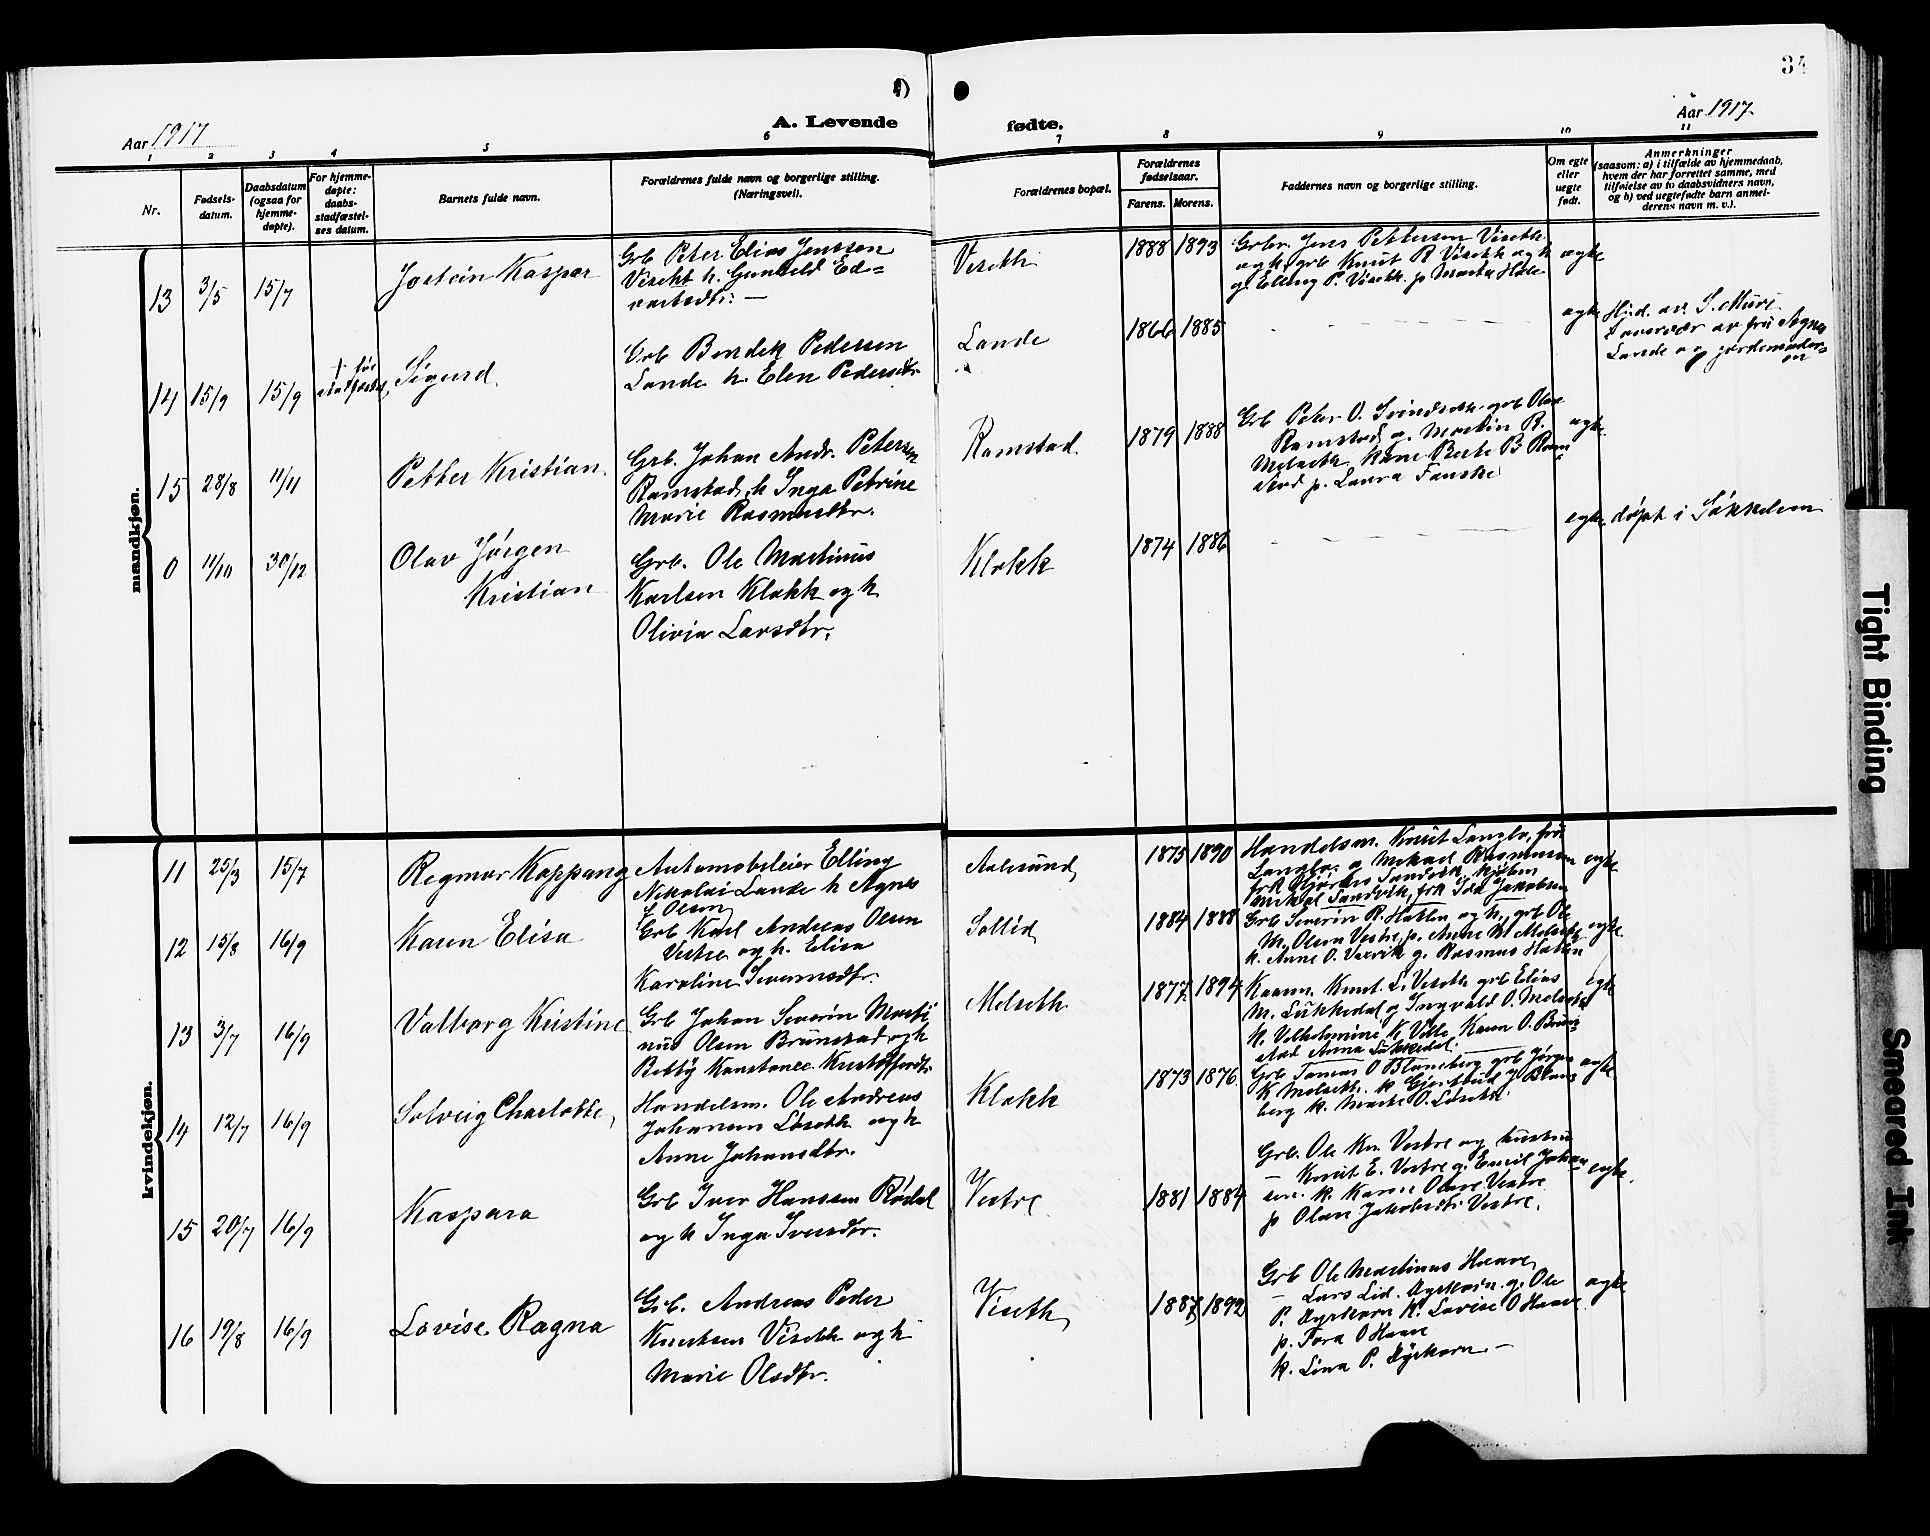 34
Aar 1917
A. Levende
fødte.
Aar 1917
1 2 3 4 5 6 7 8 9 10 11
Nr.
Fødsels-
datum.
Daabsdatum
(ogsaa for
hjemme-
døpte).
For hjemme-
døpte:
daabs-
stadfæstel-
ses datum.
Barnets fulde navn.
Forældrenes fulde navn og borgerlige stilling.
(Næringsvei).
Forældrenes bopæl.
Forældrenes
fødselsaar.
Farens. Morens.
Faddernes navn og borgerlige stilling.
Om egte
eller
uegte
født.
Anmerkninger
(saasom: a) i tilfælde av hjemmedaab,
hvem der har forrettet samme, med
tilføielse av to daabsvidners navn,
og b) ved uegtefødte barn anmel-
derens navn m. v.).
mandkjøn.
13 3/5 15/7
Jostein Kasper
Grb Peter Elias Jenssen
Viseth h. Gunhild Ed-
vartsdtr. —
Viseth
1888 1893
Grbr. Jens Pettersen Viseth
og h, grb Knut P Viseth og h
g. Elling P. Viseth. p Marta Hole
egte
14 15/9 15/9
† før
stadfæstet
Sigurd
Grb Bendik Pedersen
Lande h. Elen Pedersdtr
Lande
1866 1885
egte
Hjd. av S. Mure
i overvær av fru Agnes
Lande og jordemoder-
en
15 28/8 11/11
Petter Kristian
Grb. Johan Andr. Petersen
Ramstad h Inga Petrine
Marie Rasmusdtr.
Ramstad
1879 1888
Grb Peter O. Svindseth grb Olav
Ramstad g. Martin R.
Melseth kone Berte B Ram-
stad p. Laura Fauske
egte
0 11/10 30/12
Olav Jørgen
Kristian
Grb. Ole Martinus
Karlsen Klokk og h
Olivia Larsdtr.
Klokk
1874 1886
egte
døpt i Søkkelven
kvindekjøn.
11 25/3 15/7
Regmor Koppang
Automobileier Elling
Nikolai Lande h Agnes
f Olsen
Aalesund
1875 1890
Handelsm. Knut Langlo, fru
Langlo, g Mikael Rasmussen
frk Hjørdis Sandvik, kjøbm
Mikal Sandvik, frk Ida Jakobsen
egte
12 15/8 16/9
Karen Elisa
Grb Karl Andreas Olsen
Vestre og h. Elisa
Karoline Severinsdtr.
Sollid
1884 1888
Grb Severin R. Hatlen og h, grb Ole
M. Olsen Vestre, p. Anne M. Melseth
k. Anne O. g. Rasmus Hatlen
egte
13 3/7 16/9
Valborg Kristine
Grb Johan Severin Marti
nus Olsen Brunstad og h
Betty Konstance Kristoffersdtr.
Melseth
1877 1894
Kaarm. Knut L. Viseth grb Elias
M. Lukkedal g Ingvald O. Melseth
k. Vilhelmine K Ville Karen O. Brun-
stad Anna Lukkedal.
egte
14 12/7 16/9
Solveig Charlotte
Handelsm. Ole Andreas
Johansen Løseth og h
Anne Johansdtr.
Klokk
1873 1876
Grb Tomas O Blomberg grb Jørgen
K Melseth. k Gjertrud J Blom
berg k. Marte O. Løseth.
egte
15 20/7 16/9
Kaspara
Grb Iver Hanssen Rødal
og h Inga Iversdtr.
Vestre
1881 1884
Grb. Ole Kn. Vestre og hustru
— Knut E. Vestre g. Emil Johan
sen. k. Karen Olave Vestre
p Olave Jakobsdtr Vestre.
egte
16 19/8 16/9
Lovise Ragna
Grb. Andreas Peder
Knutsen Viseth og h
Marie Olsdtr.
Viseth
1887 1892
Grb Ole Martinus Haave
— Lars Lid. Dyrkorn. g. Ole
P. Dyrkorn k. Lovise O Haave
p. Tora O Haave
k. Lina P. Dyrkorn —
egte
Tight Binding
Smeared Ink